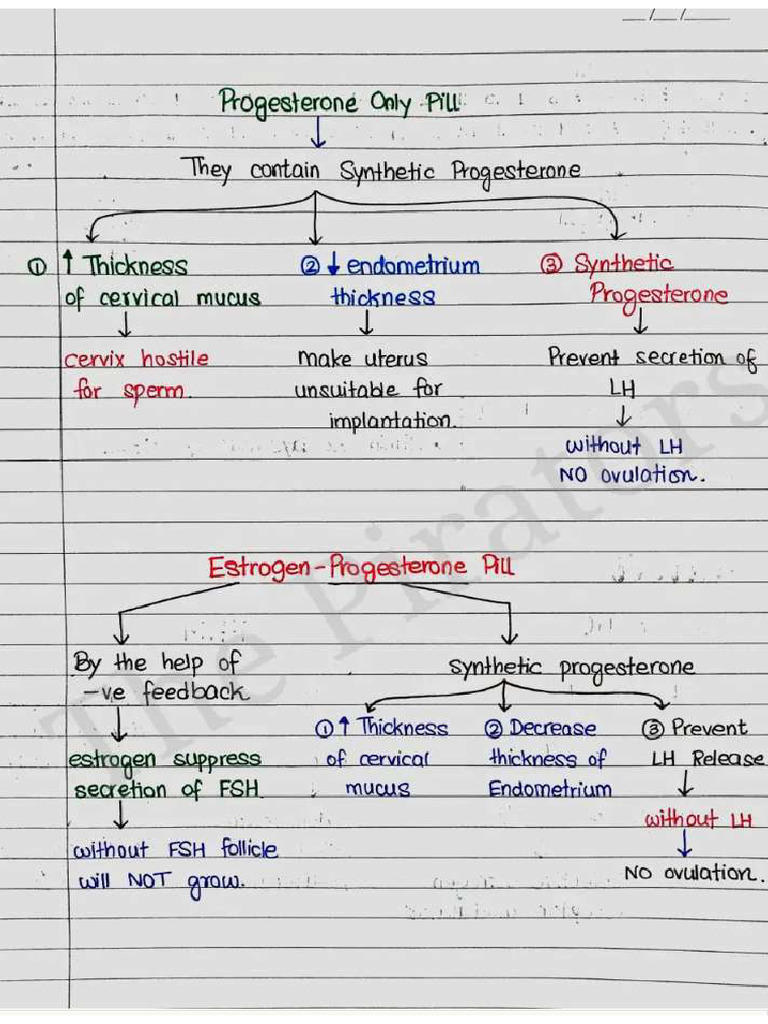 Progesterone Only Pill
They contain Synthetic Progesterone
① ↑ Thickness
of cervical mucus
cervix hostile
for sperm.
② ↓ endometrium
thickness
make uterus
unsuitable for
implantation.
③ Synthetic
Progesterone
Prevent secretion of
LH
without LH
NO ovulation.
Estrogen-Progesterone Pill
By the help of
-ve feedback
estrogen suppress
secretion of FSH
without FSH follicle
will NOT grow.
Synthetic progesterone
① ↑ Thickness
of cervical
mucus
② Decrease
thickness of
Endometrium
③ Prevent
LH Release
without LH
NO ovulation.
The Pirators